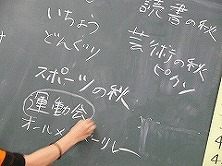 いちょう
どんぐり
読書の秋
芸術の秋
ピカソ
スポーツの秋
運動会
オールメ
リレー